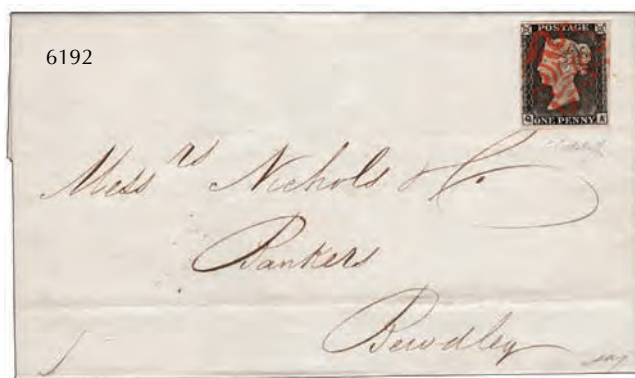 6192
POSTAGE
ONE PENNY
Messrs Nichols & Co.
Bankers
Bewdley